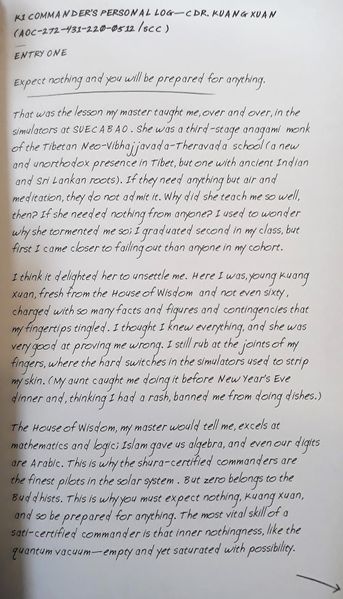 K1 COMMANDER'S PERSONAL LOG—CDR. KUANG XUAN
(AOC-272-431-220-0512/SCC)
ENTRY ONE
Expect nothing and you will be prepared for anything.
That was the lesson my master taught me, over and over, in the
simulators at SUECABAO. She was a third-stage anagami monk
of the Tibetan Neo-Vibhajjavada-Theravada school (a new
and unorthodox presence in Tibet, but one with ancient Indian
and Sri Lankan roots). If they need anything but air and
meditation, they do not admit it. Why did she teach me so well,
then? If she needed nothing from anyone? I used to wonder
why she tormented me so; I graduated second in my class, but
first I came closer to failing out than anyone in my cohort.
I think it delighted her to unsettle me. Here I was, young Kuang
Xuan, fresh from the House of Wisdom and not even sixty,
charged with so many facts and figures and contingencies that
my fingertips tingled. I thought I knew everything, and she was
very good at proving me wrong. I still rub at the joints of my
fingers, where the hard switches in the simulators used to strip
my skin. (My aunt caught me doing it before New Year's Eve
dinner and, thinking I had a rash, banned me from doing dishes.)
The House of Wisdom, my master would tell me, excels at
mathematics and logic; Islam gave us algebra, and even our digits
are Arabic. This is why the shura-certified commanders are
the finest pilots in the solar system. But zero belongs to the
Buddhists. This is why you must expect nothing, Kuang Xuan,
and so be prepared for anything. The most vital skill of a
sati-certified commander is that inner nothingness, like the
quantum vacuum—empty and yet saturated with possibility.